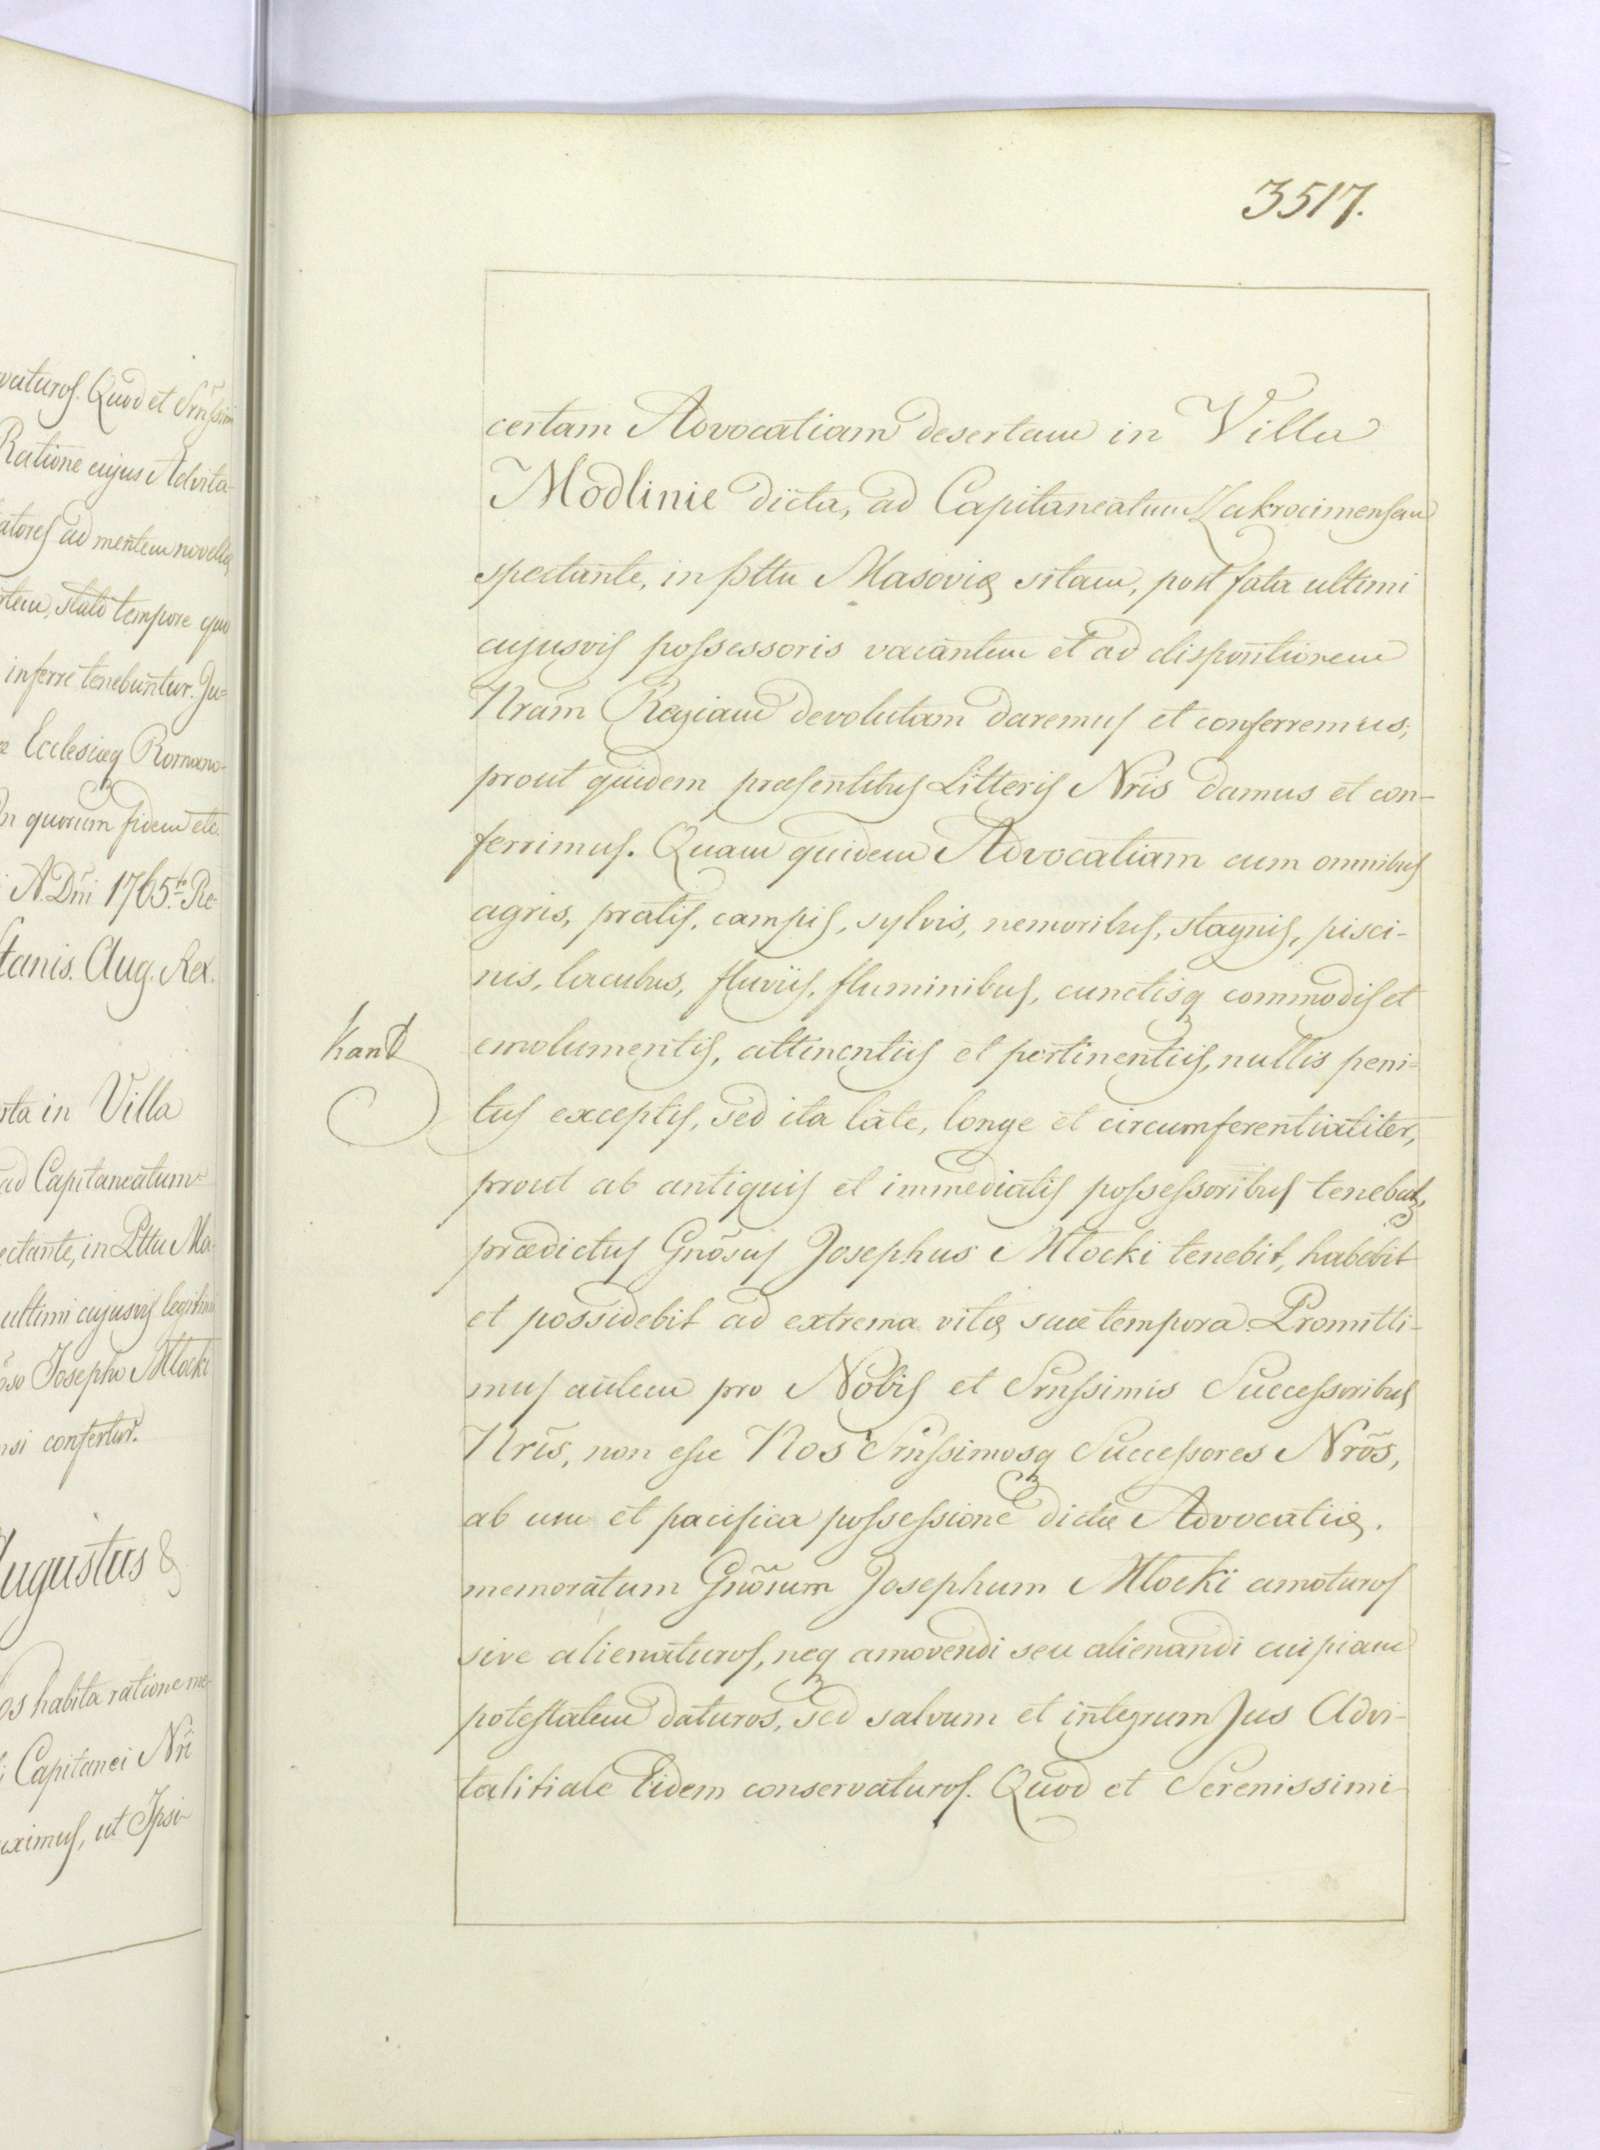 vaturos. Quod et Srnssimi
Ratione cujus Advita-
atores ad mentem novellæ
stato tempore quo
inferre tenebuntur. Ju-
Ecclesiæq Romano-
In quorum fidem etc.
A. Dni 1765to Re-
Stanis. Aug. Rex.
rta in Villa
ad Capitaneatum
ectante, in Pttu Ma-
ultimi cujusvis legitimi
oso Josepho Młocki
nsi confertur.
Augustus &
os habita ratione me-
Capitanei Nri
uximus, ut Ipsi
3517.
certam Advocatiam desertam in Villa
Modlinie dicta, ad Capitaneatum Zakrocimensem
spectante, in Pttu Masoviæ sitam, post fata ultimi
cujusvis possessoris vacantem et ad dispositionem
Nram Regiam devolutam daremus et conferremus;
prout quidem præsentibus Litteris Nris damus et con-
ferrimus. Quam quidem Advocatiam cum omnibus
agris, pratis, campis, sylvis, nemoribus, stagnis, pisci-
nis, lacubus, fluviis, fluminibus, cunctisq commodis et
Kant
emolumentis, attinentiis et pertinentiis, nullis peni-
tus exceptis, sed ita late, longe et circumferentialiter,
prout ab antiquis et immediatis possessoribus tenebatr,
prædictus Gnosus Josephus Młocki tenebit, habebit
et possidebit ad extrema vitæ suæ tempora. Promitti-
mus autem pro Nobis et Srnssimis Successoribus
Nris, non esse Nos Srnssimosq Successores Nros,
ab usu et pacifica possessione dictæ Advocatiæ.
memoratum Gnosum Josephum Młocki amoturos
sive alienaturos, neq amovendi seu alienandi cuipiam
potestatem daturos, sed salvum et integrum Jus Advi-
talitiale Eidem conservaturos. Quod et Serenissimi